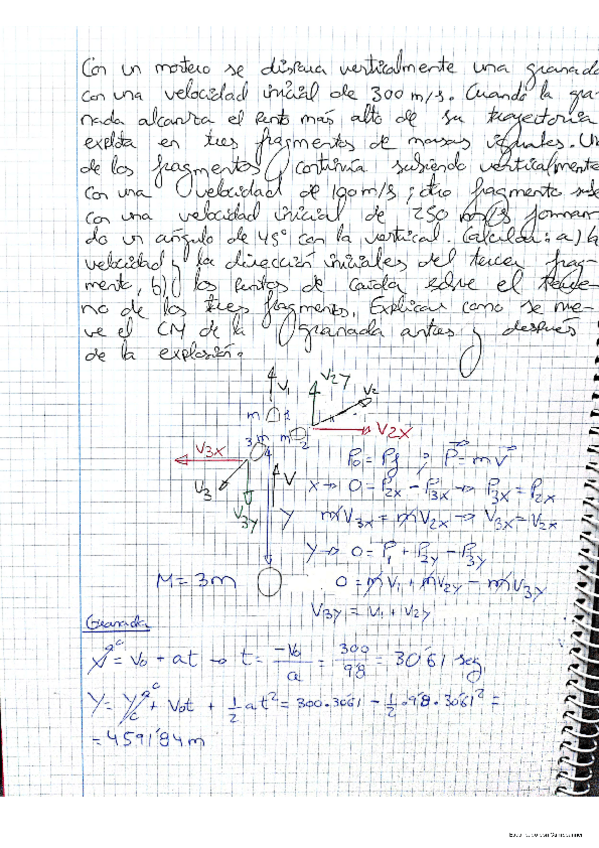 Con un mortero se dispara verticalmente una granada
con una velocidad inicial de 300 m/s. Cuando la gra-
nada alcanza el punto más alto de su trayectoria
explota en tres fragmentos de masas iguales. Un
de los fragmentos continúa subiendo verticalmente
con una velocidad de 100 m/s; otro fragmento sube
con una velocidad inicial de 250 m/s forman-
do un ángulo de 45° con la vertical. Calcular: a) la
velocidad y la dirección iniciales del tercer frag-
mento, b) los puntos de caída sobre el terre-
no de los tres fragmentos. Explicar como se mue-
ve el CM de la granada antes y después
de la explosión.
V1 V2y V2
m 1
3m m 2 V2x
V3x
V3 V3y V Y
P0 = Pf ; P = mv
X → 0 = P2x - P3x → P3x = P2x
mV3x = mV2x → V3x = V2x
Y → 0 = P1 + P2y - P3y
M = 3m 0 = mV1 + mV2y - mV3y
V3y = V1 + V2y
Granada
V = V0 + at → t = -V0/a = 300/9'8 = 30'61 seg
Y = Y0 + V0t + 1/2 at² = 300·30'61 - 1/2·9'8·30'61² =
= 4591'84 m